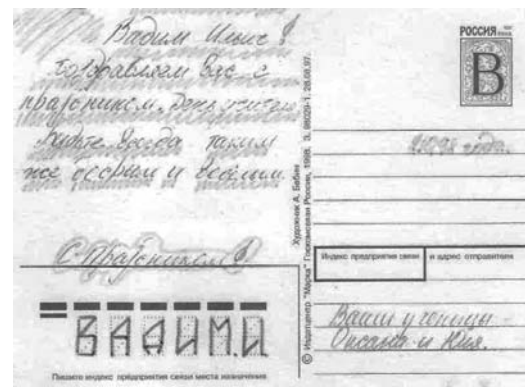 Вадим Ильич!
Поздравляем Вас с
праздником. День учителя
Будьте всегда таким
же добрым и весёлым.
С праздником!
ВАДИМ.И.
Пишите индекс предприятия связи места назначения
© Издатцентр "Марка" Госкомсвязи России, 1998.
Художник А. Бабин
РОССИЯ
В
года.
Индекс предприятия связи и адрес отправителя
Ваши ученицы -
Оксана и Юля.